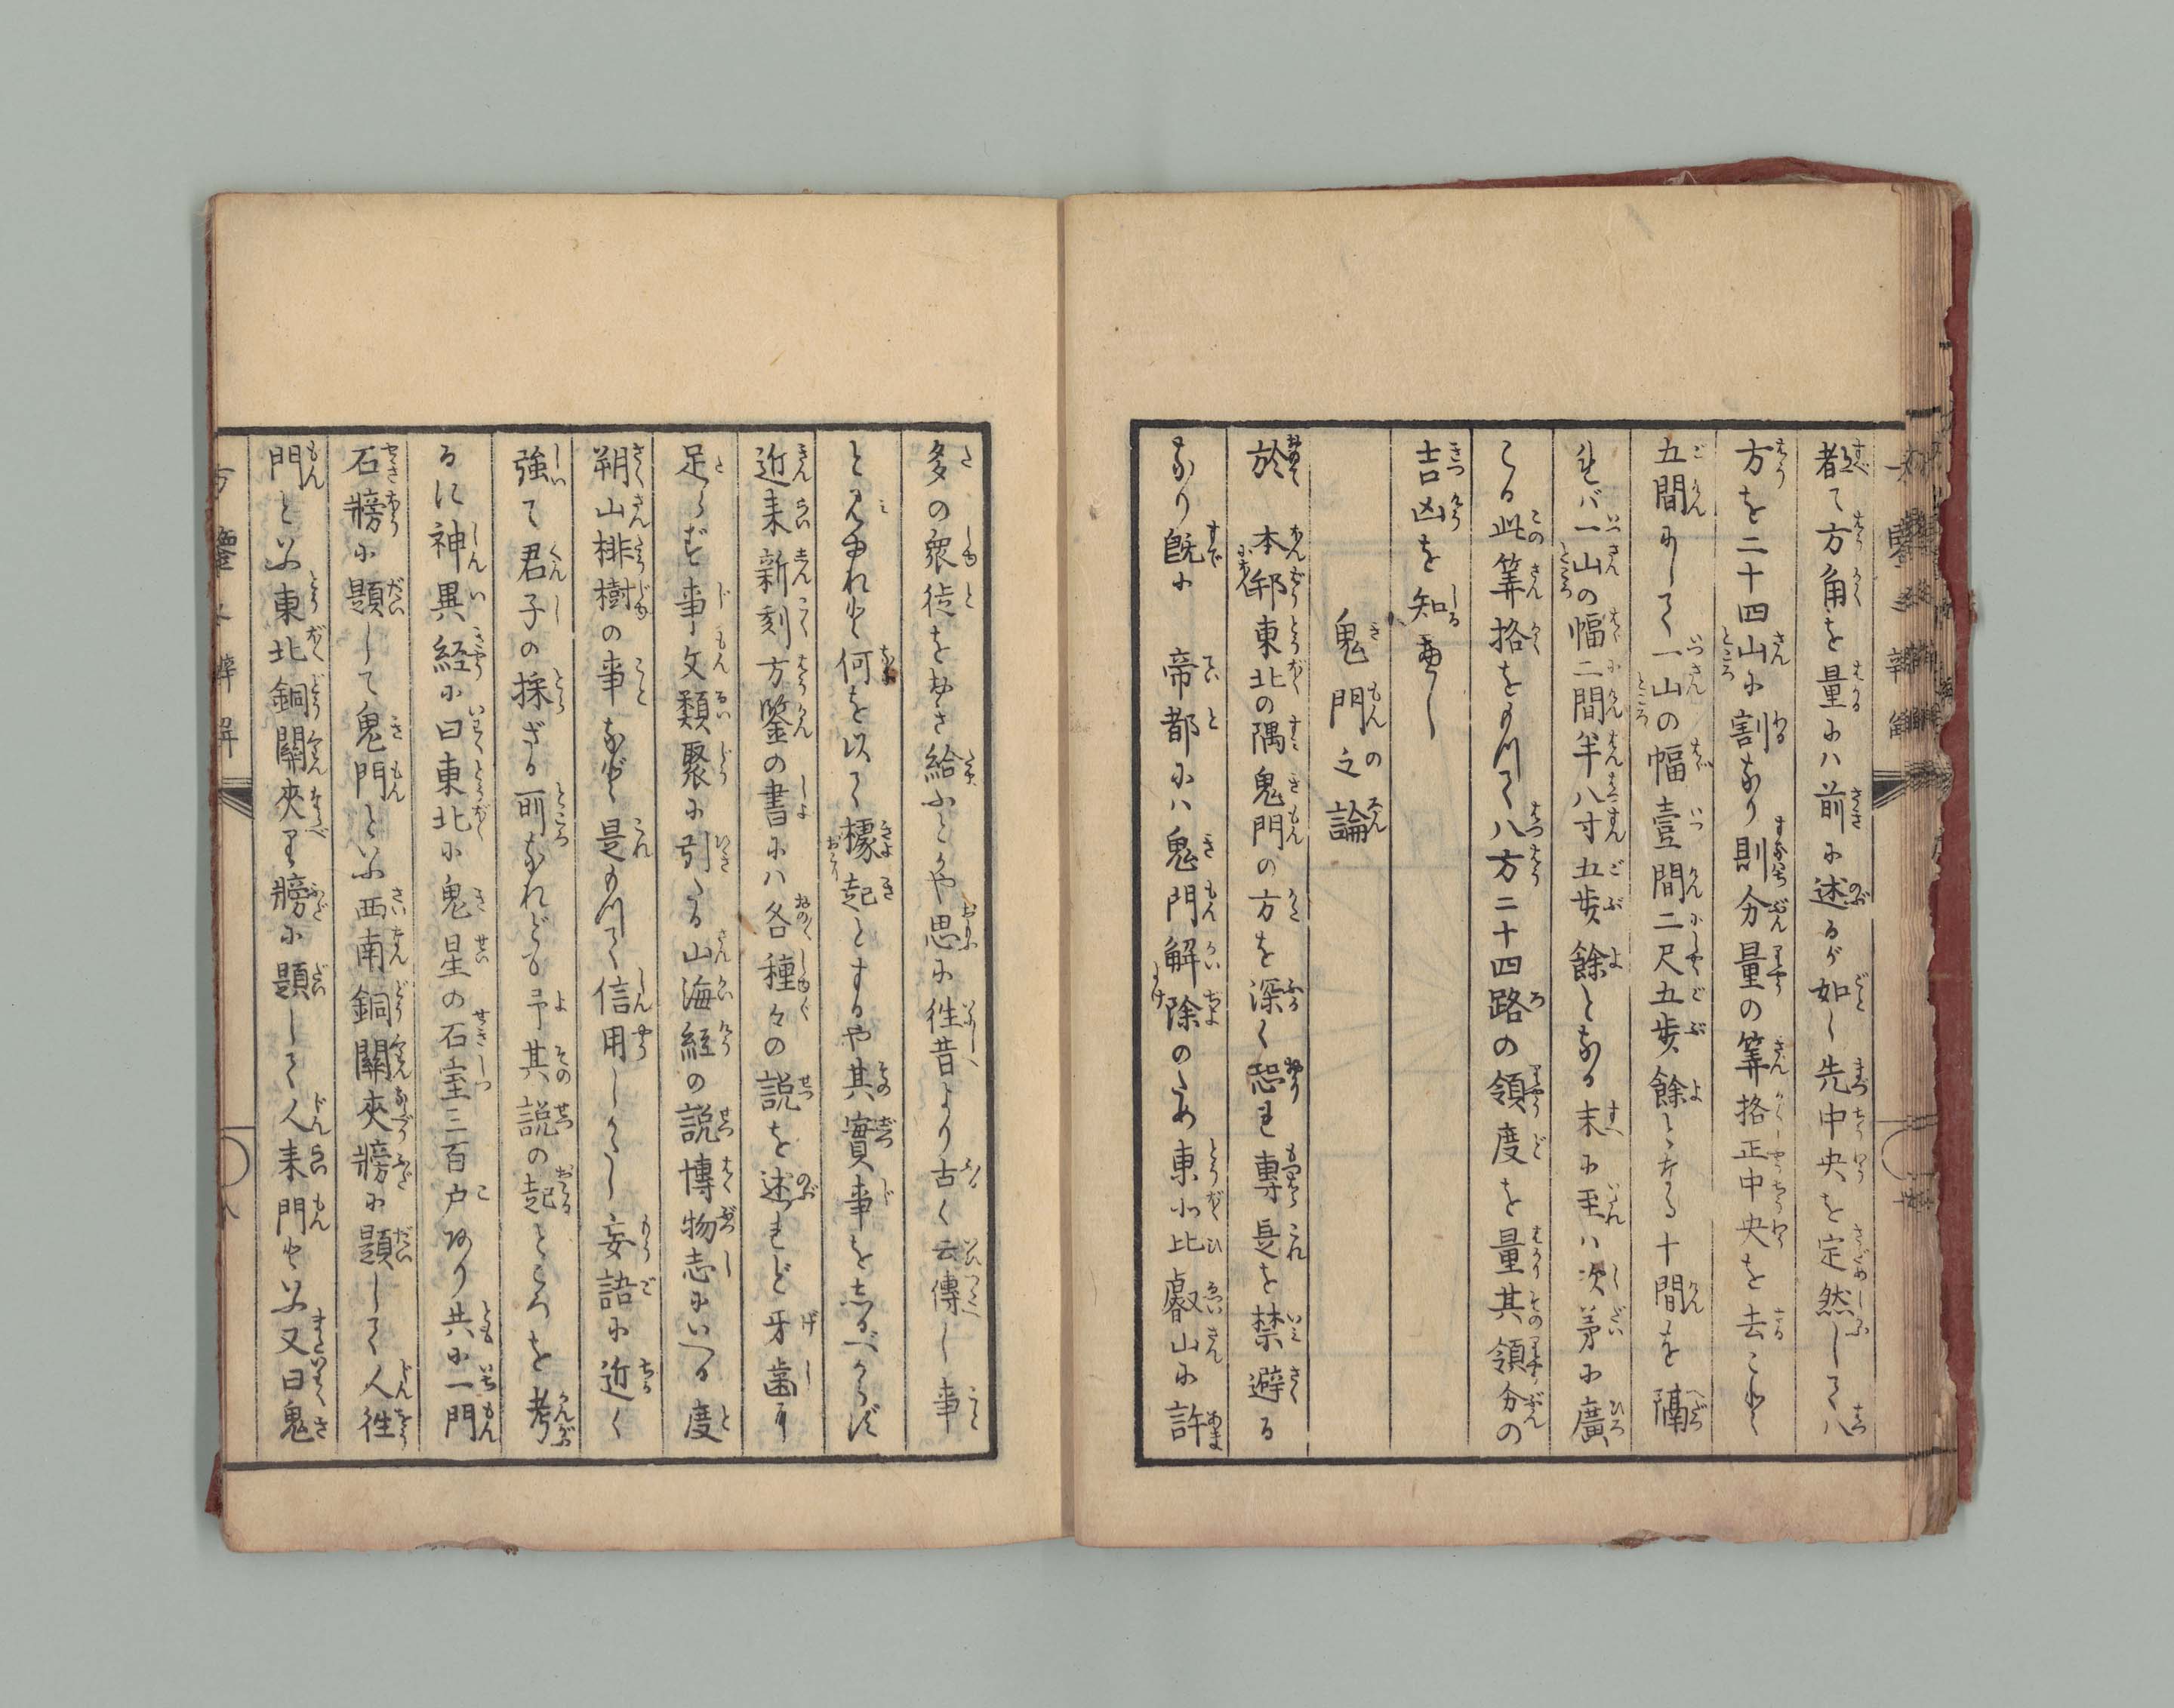 都て方角を量には前に述るが如し先中央を定然して八
方を二十四山に割なり則分量の筭格正中央を去こと
五間にして一山の幅壹間二尺五歩餘となる十間を隔
れバ一山の幅二間半八寸五歩餘となる末に至れハ次第に廣
こる此筭格をもつて八方二十四路の領度を量其領分の
吉凶を知べし
鬼門之論
於 本邦東北の隅鬼門の方を深く恐れ專是を禁避る
なり既に 帝都にハ鬼門解除のため東北比叡山に許
多の衆徒をおき給ふとかや思に徃昔より古く云傳し事
と見申れど何を以て據起とするや其實事をしるべからず
近来新刻方鑒の書にハ各種々の説を述れど牙歯に
足らず事文類聚に引たる山海経の説博物志にいへる度
朔山桃樹の事など是もつて信用しがたし妄語に近く
強て君子の採ざる所なれども予其説の起ところを考
るに神異経に曰東北に鬼星の石室三百戸あり共に一門
石牓に題して鬼門といふ西南銅關夾牓に題して人徃
門といふ東北銅關夾り牓に題して人来門といふ又曰鬼